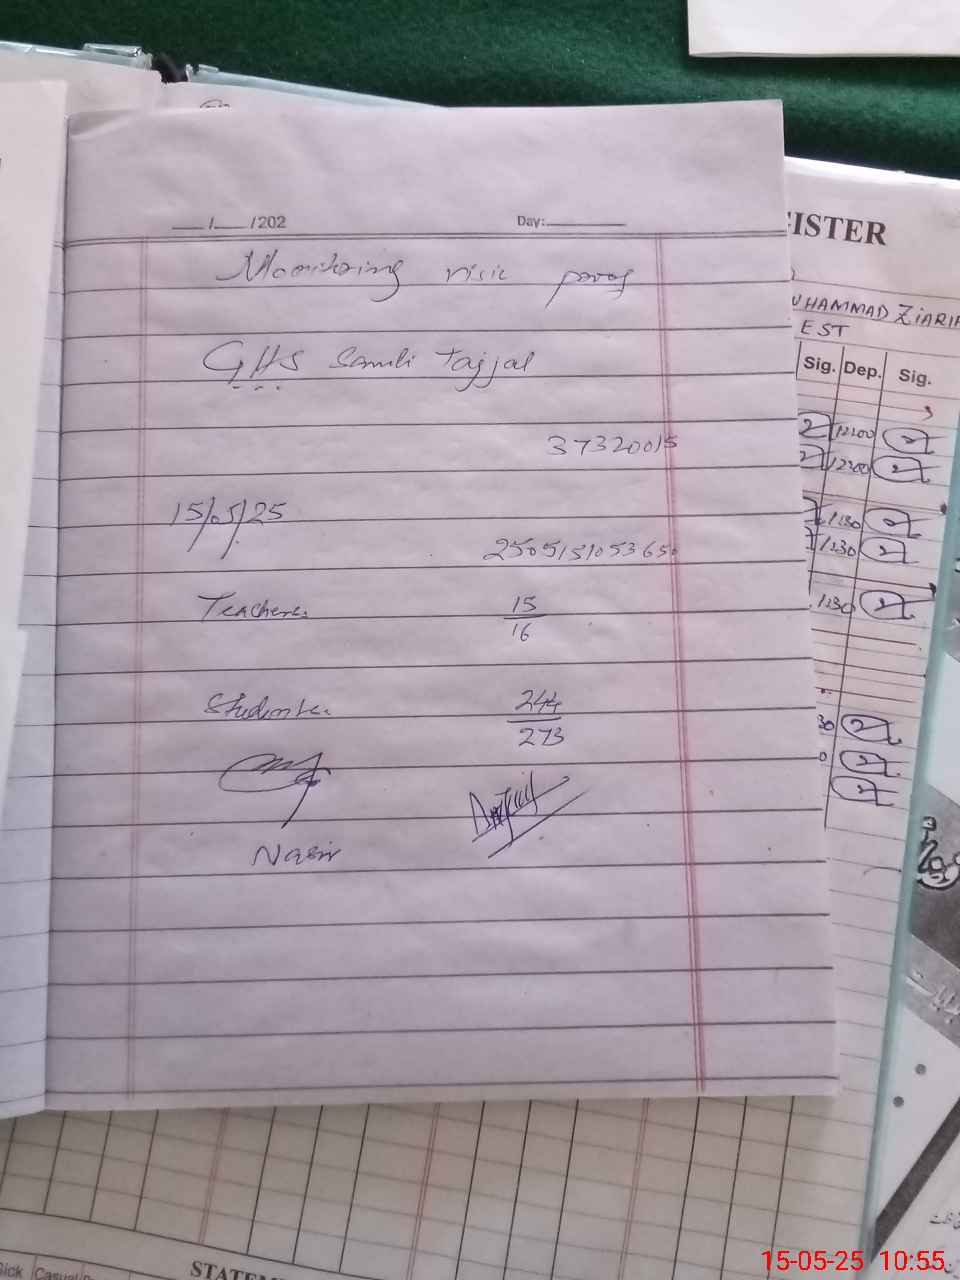 __/__/202 Day:
Monitoring visit proof
GHS Samli Tajjal
37320015
15/05/25
2505151053650
Teachers 15
16
Students 244
273
Nasir
GISTER
MUHAMMAD ZIARI
EST
Sig. Dep. Sig.
1200
1200
1130
1130
1130
30
0
Sick Casual
STATEM
15-05-25 10:55